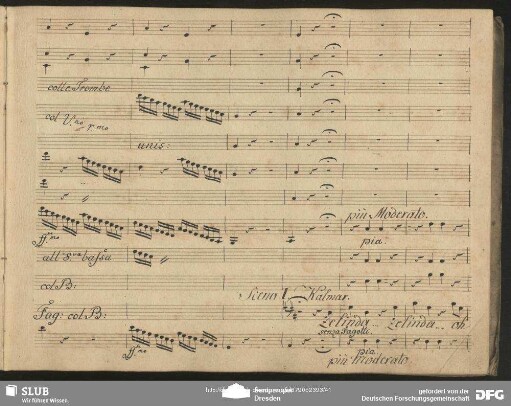 colle Trombe
col V.no 1.mo
unis:
più Moderato.
ff.mo
pia.
all 8.va bassa
col B:
Scena 1 Kalmar.
Fag: col B:
Zelinda... Zelinda... oh
senza Fagotti
ff.mo
pia.
più Moderato
SLUB
Wir führen Wissen.
Dresden
gefördert von der
Deutschen Forschungsgemeinschaft
DFG